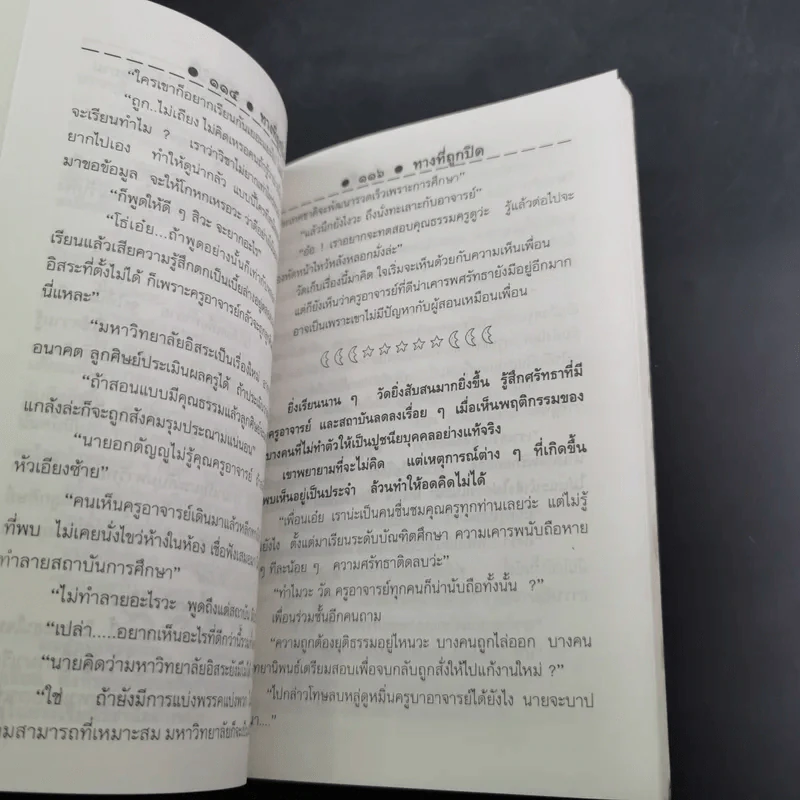 ๑๑๔ • ทางที่ถูก
“ใครเขาก็อยากเรียนกัน
“ถูก..ไม่เถียง ไม่คิดเหรอคน
จะเรียนทำไม ? เราว่าวิชาไม่ยาก
ยากไปเอง ทำให้ดูน่ากลัว แบบนี้ใคร
มาขอข้อมูล จะให้โกหกเหรอวะ ว่าดีอย่าง
“ก็พูดให้ดี ๆ สิวะ จะยากอะไร”
“โธ่เอ๋ย...ถ้าพูดอย่างนั้นก็เท่ากับ
เรียนแล้วเสียความรู้สึกตกเป็นเบี้ยล่างอยู่
อิสระที่ตั้งไม่ได้ ก็เพราะครูอาจารย์กลัวจะถูก
นี่แหละ”
“มหาวิทยาลัยอิสระเป็นเรื่องใหม่
อนาคต ลูกศิษย์ประเมินผลครูได้ ถ้าประเมิน
“ถ้าสอนแบบมีคุณธรรมแล้วลูกศิษย์
แกล้งล่ะก็จะถูกสังคมรุมประณามแน่นอน”
“นายอกตัญญูไม่รู้คุณครูอาจารย์
หัวเอียงซ้าย”
“คนเห็นครูอาจารย์เดินมาแล้วหลีก
ที่พบ ไม่เคยนั่งไขว่ห้างในห้อง เชื่อฟังเสมอ
ทำลายสถาบันการศึกษา”
“ไม่ทำลายอะไรวะ พูดถึงแต่สถาบัน
“เปล่า.....อยากเห็นอะไรที่ดีกว่านี้
“นายคิดว่ามหาวิทยาลัยอิสระยัง
“ใช่ ถ้ายังมีการแบ่งพรรคแบ่งพวก
มสามารถที่เหมาะสม มหาวิทยาลัยก็จะ
๑๑๖ • ทางที่ถูกปิด
ประเทศชาติจะพัฒนารวดเร็วเพราะการศึกษา”
“แล้วนึกยังไงวะ ถึงนั่งทะเลาะกับอาจารย์”
“อ๋อ ! เราอยากจะทดสอบคุณธรรมครูดูว่ะ รู้แล้วต่อไปจะ
องหัดหน้าไหว้หลังหลอกมั่งล่ะ”
วัดเก็บเรื่องนี้มาคิด ใจเริ่มจะเห็นด้วยกับความเห็นเพื่อน
แต่ก็ยังเห็นว่าครูอาจารย์ที่ดีน่าเคารพศรัทธายังมีอยู่อีกมาก
อาจเป็นเพราะเขาไม่มีปัญหากับผู้สอนเหมือนเพื่อน
ยิ่งเรียนนาน ๆ วัดยิ่งสับสนมากยิ่งขึ้น รู้สึกศรัทธาที่มี
ครูอาจารย์ และสถาบันลดลงเรื่อย ๆ เมื่อเห็นพฤติกรรมของ
บางคนที่ไม่ทำตัวให้เป็นปูชนียบุคคลอย่างแท้จริง
เขาพยายามที่จะไม่คิด แต่เหตุการณ์ต่าง ๆ ที่เกิดขึ้น
พบเห็นอยู่เป็นประจำ ล้วนทำให้อดคิดไม่ได้
“เพื่อนเอ๋ย เราน่ะเป็นคนชื่นชมคุณครูทุกท่านเลยว่ะ แต่ไม่รู้
ยังไง ตั้งแต่มาเรียนระดับบัณฑิตศึกษา ความเคารพนับถือหาย
ๆ ทีละน้อย ๆ ความศรัทธาติดลบว่ะ”
“ทำไมวะ วัด ครูอาจารย์ทุกคนก็น่านับถือทั้งนั้น ?”
เพื่อนร่วมชั้นอีกคนถาม
“ความถูกต้องยุติธรรมอยู่ไหนวะ บางคนถูกไล่ออก บางคน
ทยานิพนธ์เตรียมสอบเพื่อจบกลับถูกสั่งให้ไปแก้งานใหม่ ?”
“ไปกล่าวโทษลบหลู่ดูหมิ่นครูบาอาจารย์ได้ยังไง นายจะบาป
นา....”